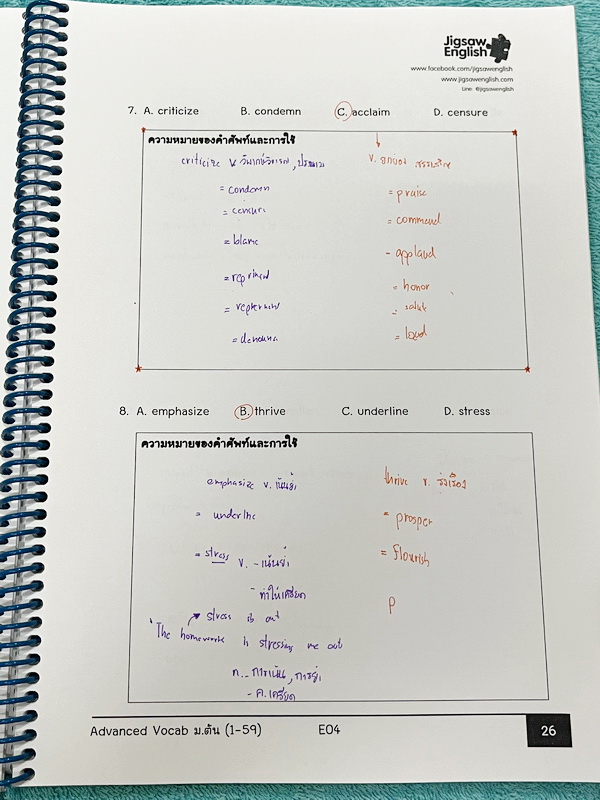 Jigsaw
English
www.facebook.com/jigsawenglish
www.jigsawenglish.com
Line: @jigsawenglish
7. A. criticize B. condemn C. acclaim D. censure
ความหมายของคำศัพท์และการใช้
criticize v. วิพากษ์วิจารณ์, ประณาม
v. ยกย่อง สรรเสริญ
= condemn
= praise
= censure
= commend
= blame
- applaud
= honor
= salute
8. A. emphasize B. thrive C. underline D. stress
ความหมายของคำศัพท์และการใช้
emphasize v. เน้นย้ำ
thrive v. รุ่งเรือง
= underline
= prosper
= stress v. - เน้นย้ำ
= flourish
- ทำให้เครียด
P
stress out
"The homework is stressing me out
n. - การเน้น, การย้ำ
- ค.เครียด
Advanced Vocab ม.ต้น (1-59) E04 26